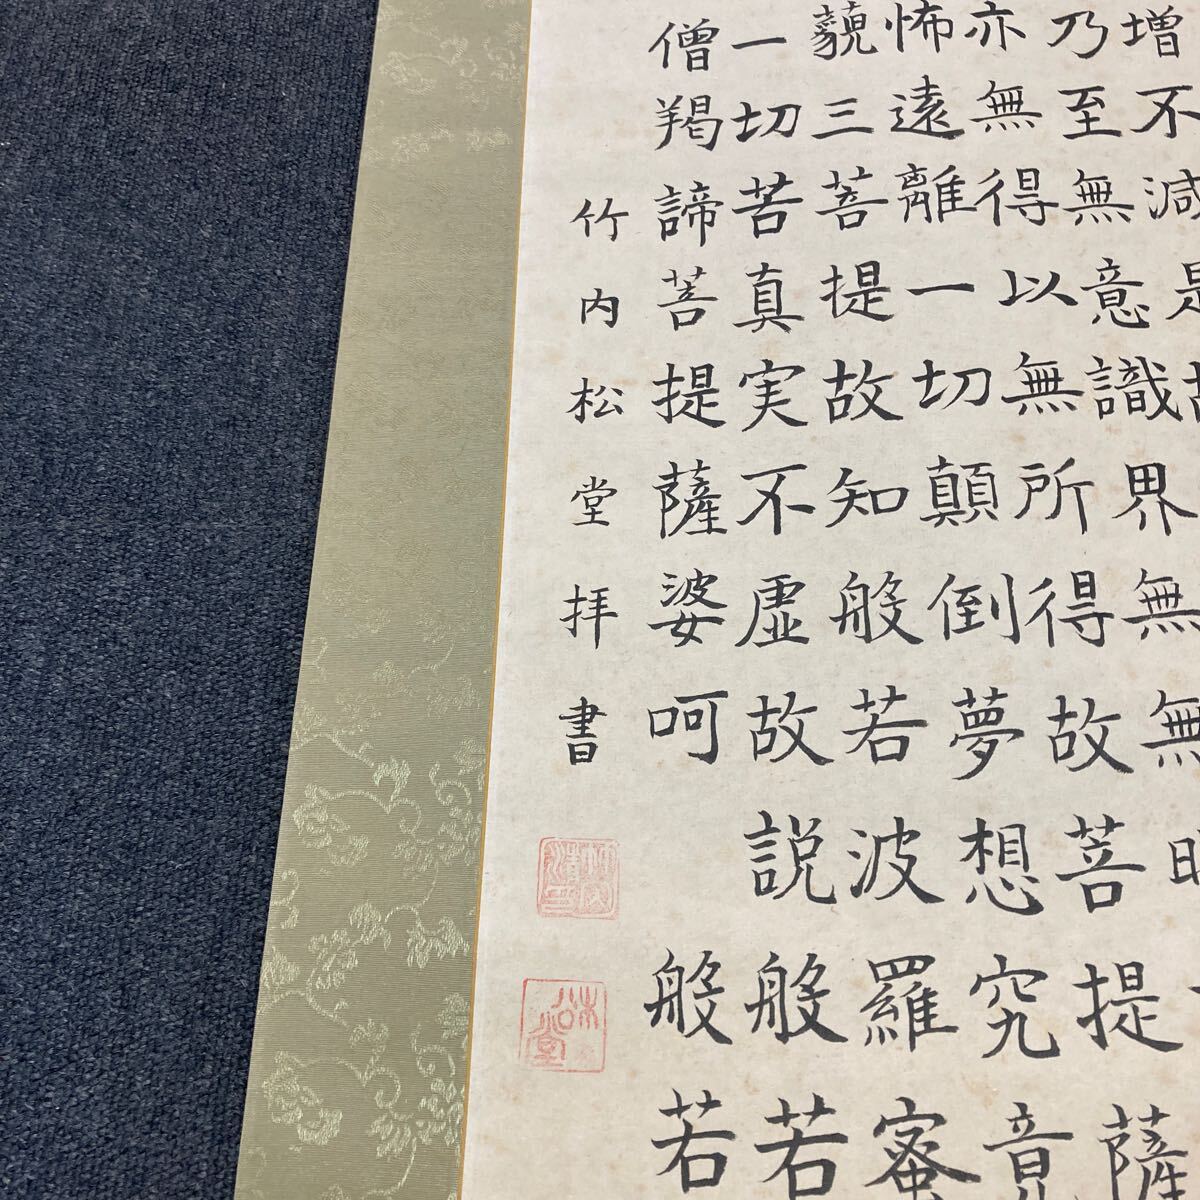 増不減是故
乃至無意識界無無明
亦無得以無所得故菩提薩
怖遠離一切顛倒夢想究竟
藐三菩提故知般若波羅蜜
一切苦真実不虚故説般若
僧羯諦菩提薩婆呵般若
竹内松堂拝書
松堂